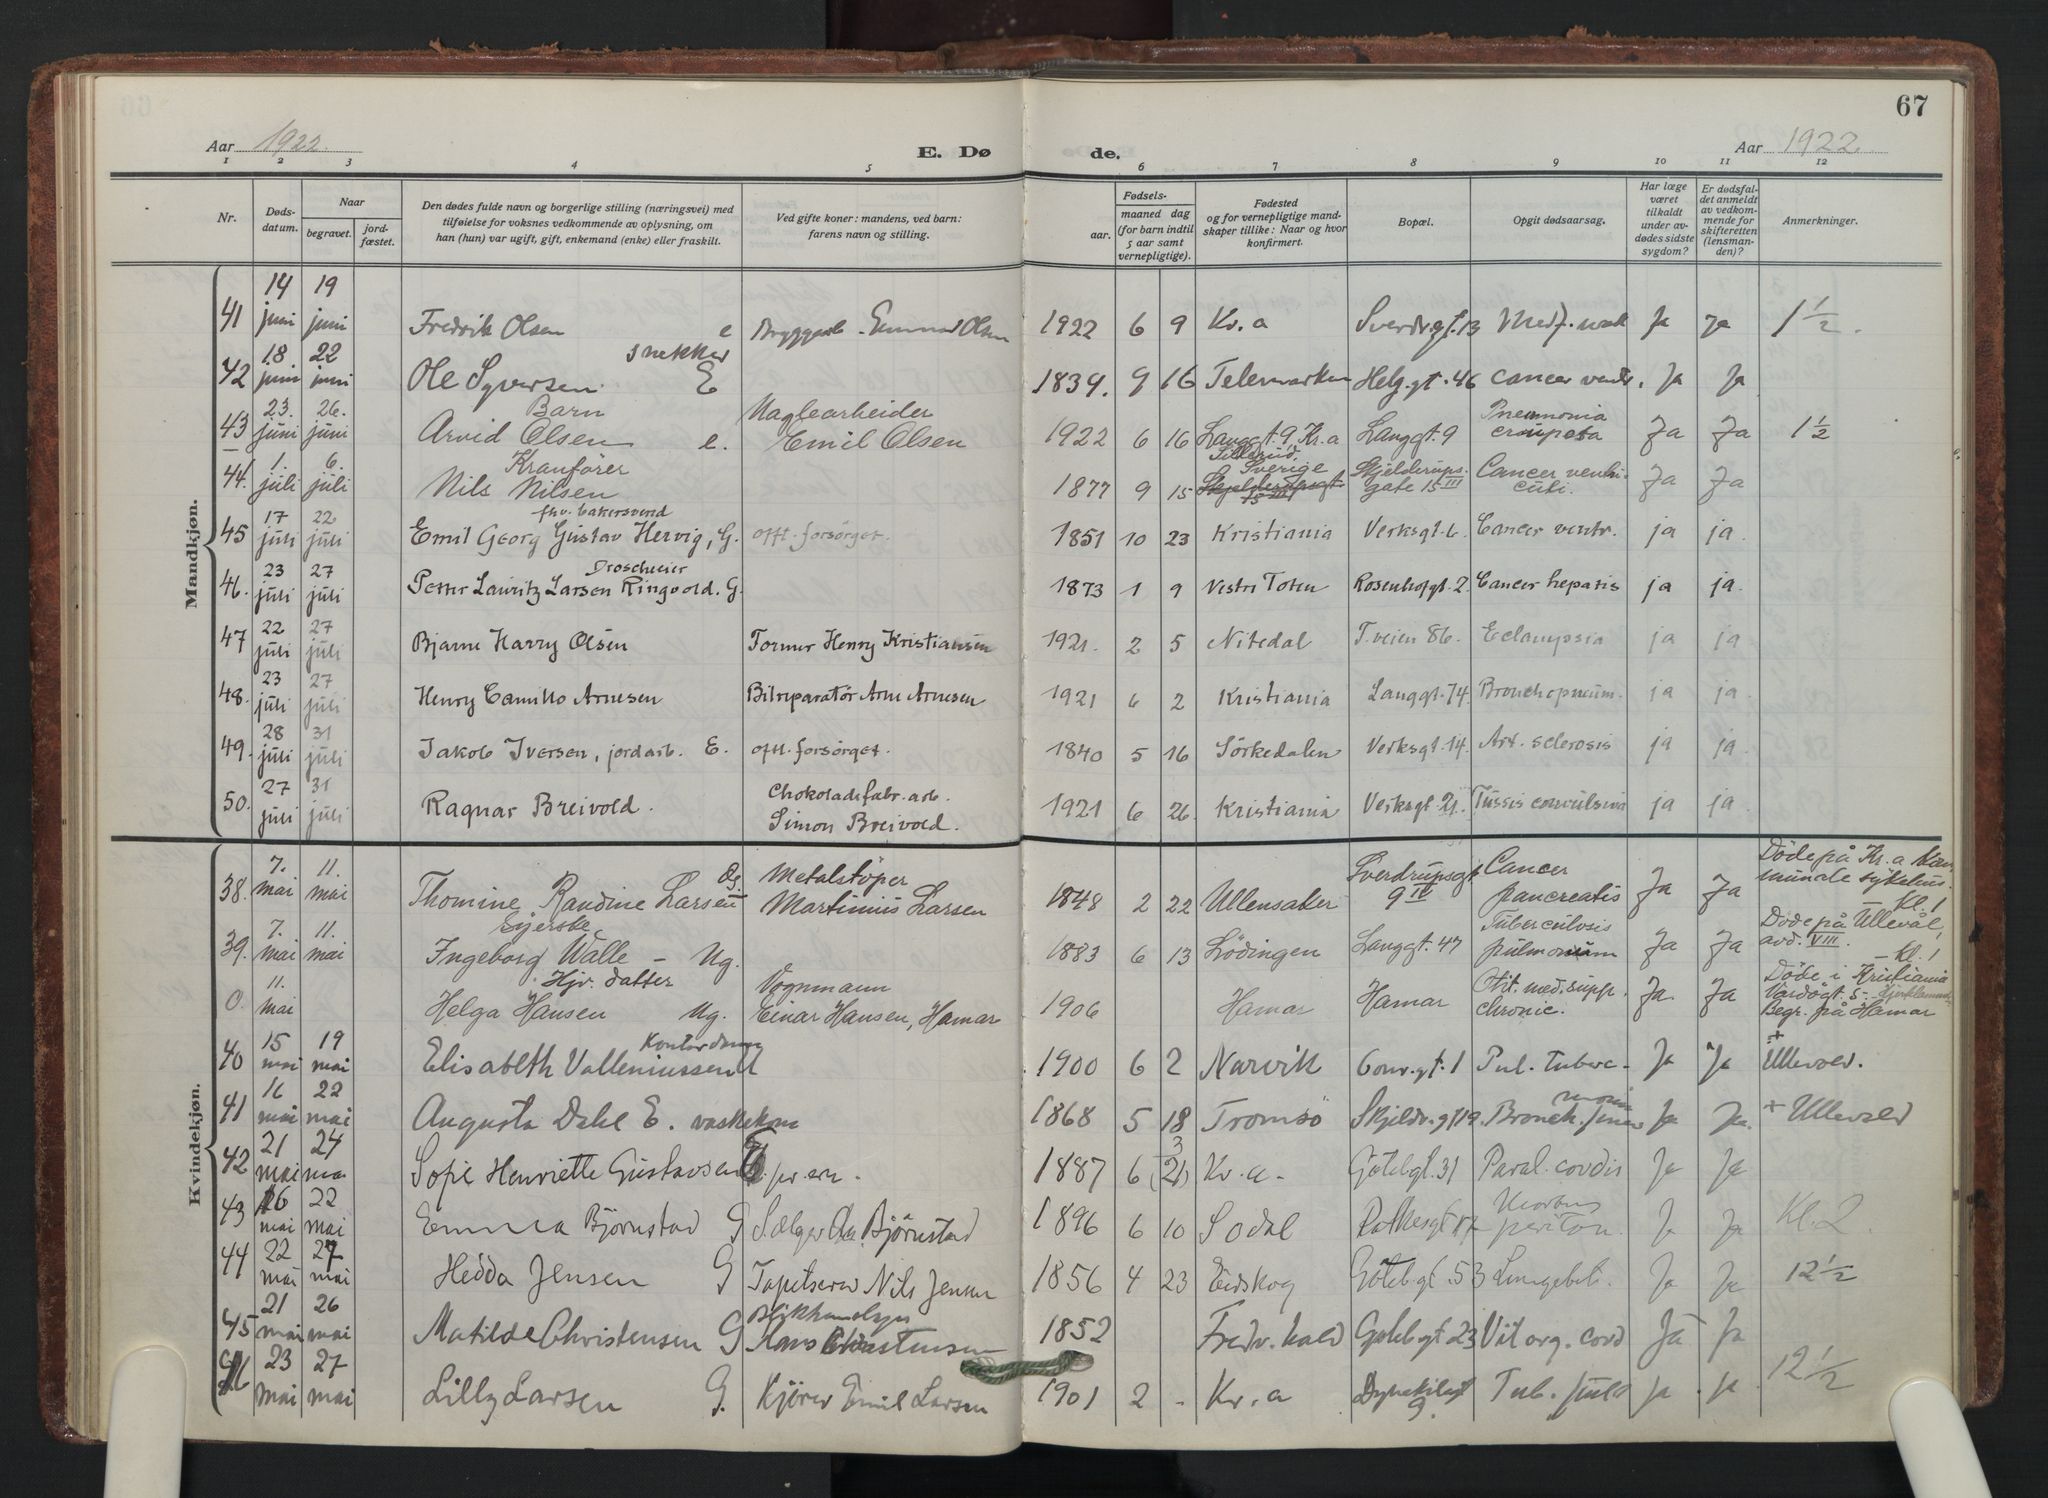 67
Aar 1922.
E. Dø
de.
Aar 1922.
1 2 3 4 5 6 7 8 9 10 11 12
Nr.
Døds-
datum.
Naar
begravet.
jord-
fæstet.
Den dødes fulde navn og borgerlige stilling (næringsvei) med
tilføielse for voksnes vedkommende av oplysning, om
han (hun) var ugift, gift, enkemand (enke) eller fraskilt.
Ved gifte koner: mandens, ved barn:
farens navn og stilling.
Fødsels-
aar.
maaned dag
(for barn indtil
5 aar samt
vernepligtige).
Fødested
og for vernepligtige mand-
skaper tillike: Naar og hvor
konfirmert.
Bopæl.
Opgit dødsaarsag.
Har læge
været
tilkaldt
under av-
dødes sidste
sygdom?
Er dødsfal-
det anmeldt
av vedkom-
mende for
skifteretten
(lensman-
den)?
Anmerkninger.
Mandkjøn.
14 19
41 juni juni Fredrik Olsen e Bryggearb. Olsen 1922 6 9 Kr.a Sverdr.gt. 13 Ja Ja 1½.
18 22 snekker
42 juni juni Ole Syversen E 1839. 9 16 Telemarken Helg.gt. 46 cancer ventr. Ja Ja
23. 26. Barn Naglearbeider Pneumonia
43 juni juni Arvid Olsen e. Emil Olsen 1922 6 16 Langgt. 9 Kr.a Langgt. 9 crouposa Ja Ja 1½
1. 6. Kranfører Sverige Skjelderups- Cancer ventri-
44. juli juli Nils Nilsen 1877 9 15 gate 15 III culi. Ja Ja
17 22 fhv. bakersvend
45 juli juli Emil Georg Gustav Hervig, G. offt. forsørget. 1851 10 23 Kristiania Verksgt. 6 Cancer ventr. ja ja.
23 27 Droscheeier
46. juli juli Petter Lauritz Larsen Ringvold. G. 1873 1 9 Vestre Toten Rosenhofgt. 2. Cancer hepatis ja ja.
22 27
47 juli juli Bjarne Harry Olsen Former Henry Kristiansen 1921. 2 5 Nitedal T.veien 86. Eclampsia ja ja
23 27
48. juli juli Henry Camillo Arnesen Bilreparatør Arne Arnesen 1921 6 2 Kristiania Langgt. 74. Bronchopneum. ja ja
28 31
49. juli juli Jakob Iversen, jordarb. E. offt. forsørget. 1840 5 16 Sørkedalen Verksgt. 14. Art. sclerosis ja ja
27 31 Chokoladefabr. arb.
50. juli juli Ragnar Breivold. Simon Breivold. 1921 6 26. Kristiania Verksgt. 21. Tussis convulsiva ja ja
Kvindekjøn.
7. 11. Metalstøper Sverdrupsgt. Cancer Døde på Kr.a kom-
38. mai mai Thomine Randine Larsen Martinius Larsen 1848 2 22 Ullensaker 9 IV pancreatis Ja Ja munale sykehus. Kl. 1
7. 11. Eierske Tuberculosis Døde på Ullevål,
39. mai mai Ingeborg Walle - Ug. 1883 6 13 Lødingen Langgt. 47 pulmonum Ja Ja avd. VIII. - Kl. 1
11. Hjv. datter Vognmann Otit. med. supp. Døde i Kristiania
0. mai Helga Hansen Ug. Einar Hansen, Hamar 1906 Hamar Hamar chronic. Ja Ja Vardøgt. 5 - Begr. på Hamar
15 19 Kontordame
40 mai mai Elisabeth Valleniussen 1900 6 2 Narvik Conr.gt. 1 Pul. tuberc. Ja Ja + Ullevold.
16 22
41 mai mai Augusta Dahl E. vaskekone 1868 5 18 Tromsø Skjeldr.gt 19. Bronch. Ja Ja. + Ullevold
21 24 3
42 mai ma Sofie Henriette Gustavsen 1887 6 (21) Kr.a. Gøtebgt. 31 Paral. cordis Ja Ja
16 22
43 mai mai Emma Bjørnstad G Sælger Bjørnstad 1896 6 10 Sodal Rathkesgt 17 Morbus periton. Ja Ja Kl. 2.
22 27
44 mai mai Hedda Jensen G Tapetserer Nils Jensen 1856 4 23 Eidskog Gøteb.gt. 53 Lungebet. Ja Ja 12½
21 26
45 mai mai Matilde Christensen G Hans Christensen 1852 Fredr.hald Gøtebgt 23 Vit org. cord Ja Ja
23 27
46 mai mai Lilly Larsen G. Kjører Emil Larsen 1901 2 - Kr.a Tub. pulm Ja Ja 12½